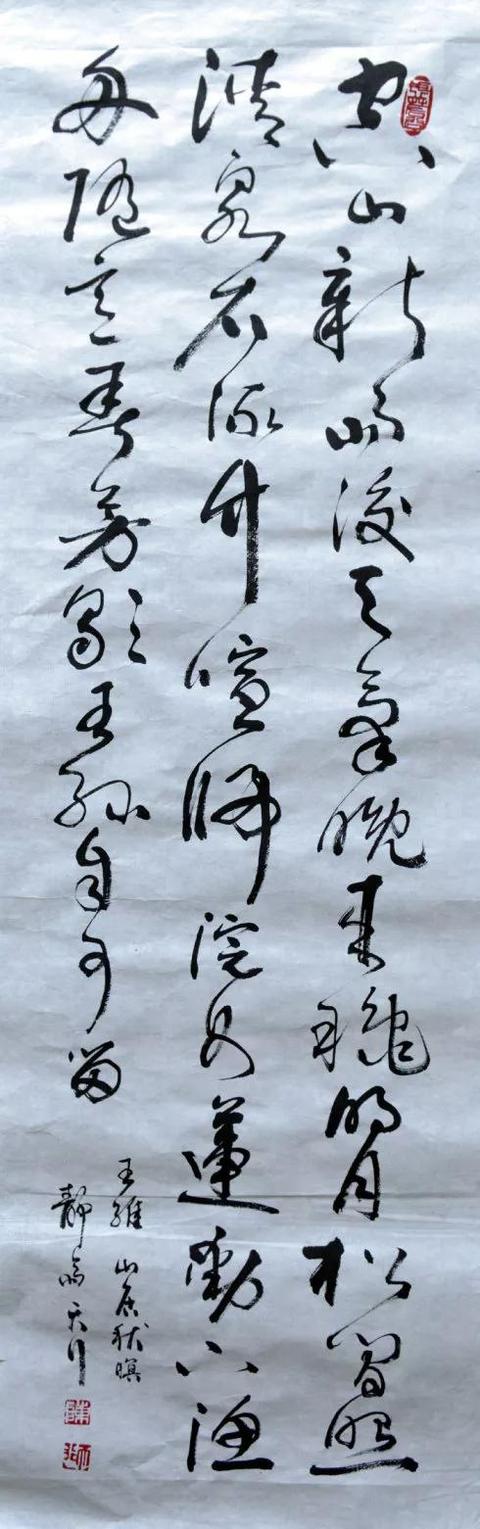 空山新雨後天氣晚來龝明月松間照
清泉石流竹喧歸浣女蓮動下漁
舟隨意春芳歇王孫自可留
王維 山居秋暝
靜齋天行
陳